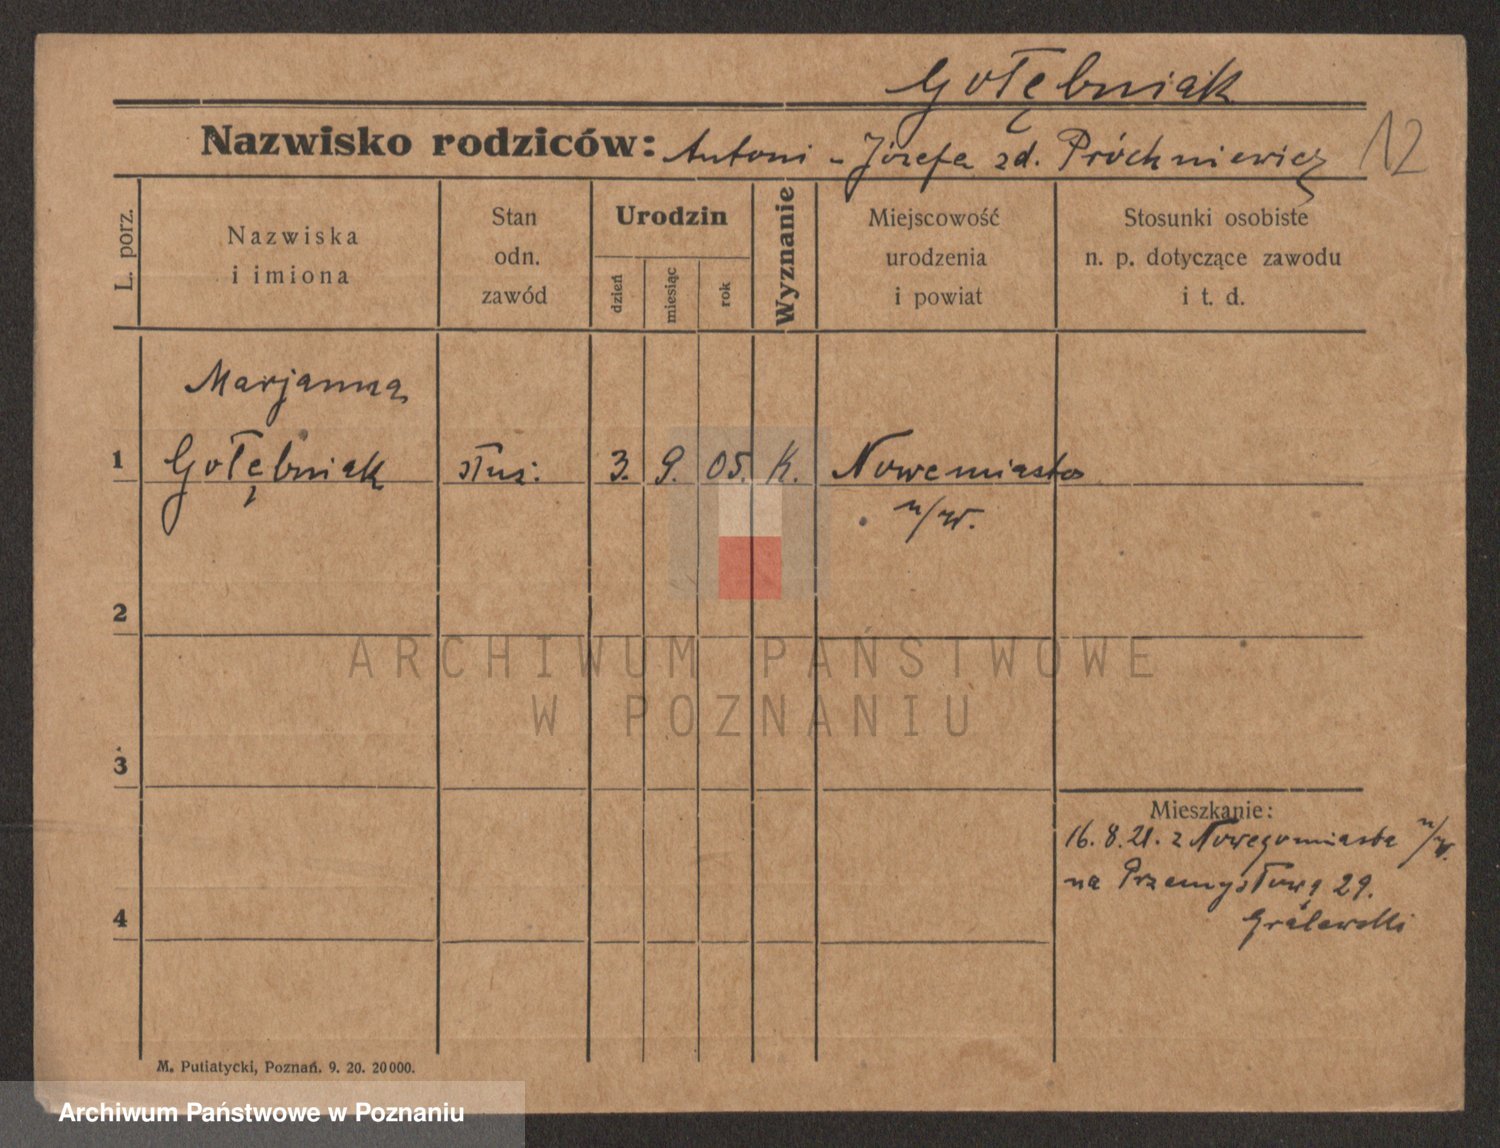 Gołębniak
Nazwisko rodziców: Antoni - Józefa zd. Próchniewicz 12
L. porz.
Nazwiska
i imiona
Stan
odn.
zawód
Urodzin
dzień
miesiąc
rok
Wyznanie
Miejscowość
urodzenia
i powiat
Stosunki osobiste
n. p. dotyczące zawodu
i t. d.
Marjanna
1 Gołębniak służ: 3. 9. 05. K. Nowemiasto
n/W.
2
ARCHIWUM PAŃSTWOWE
W POZNANIU
3
Mieszkanie:
16. 8. 21. z Nowegomiasta n/W.
na Przemysłową 29.
4
Gralewski
M. Putiatycki, Poznań. 9. 20. 20000.
Archiwum Państwowe w Poznaniu